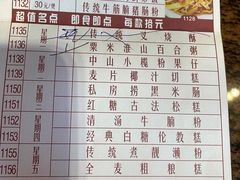 1132 30元/煲 传统牛筋腩猪肠粉
超值名点 即食即点 每款拾元 1128
1135 星期一 传统叉烧酥
1136 粟米淮山百合粥
1138 星期二 中山小榄粉果仔
1139 麦片椰汁切糕
1145 星期三 私房捞黑米肠
1151 红糖古法松糕
1152 星期四 清汤牛筋
1153 经典白糖伦教糕
1155 星期五 传统煮靓濑粉
1156 全麦粗粮糕